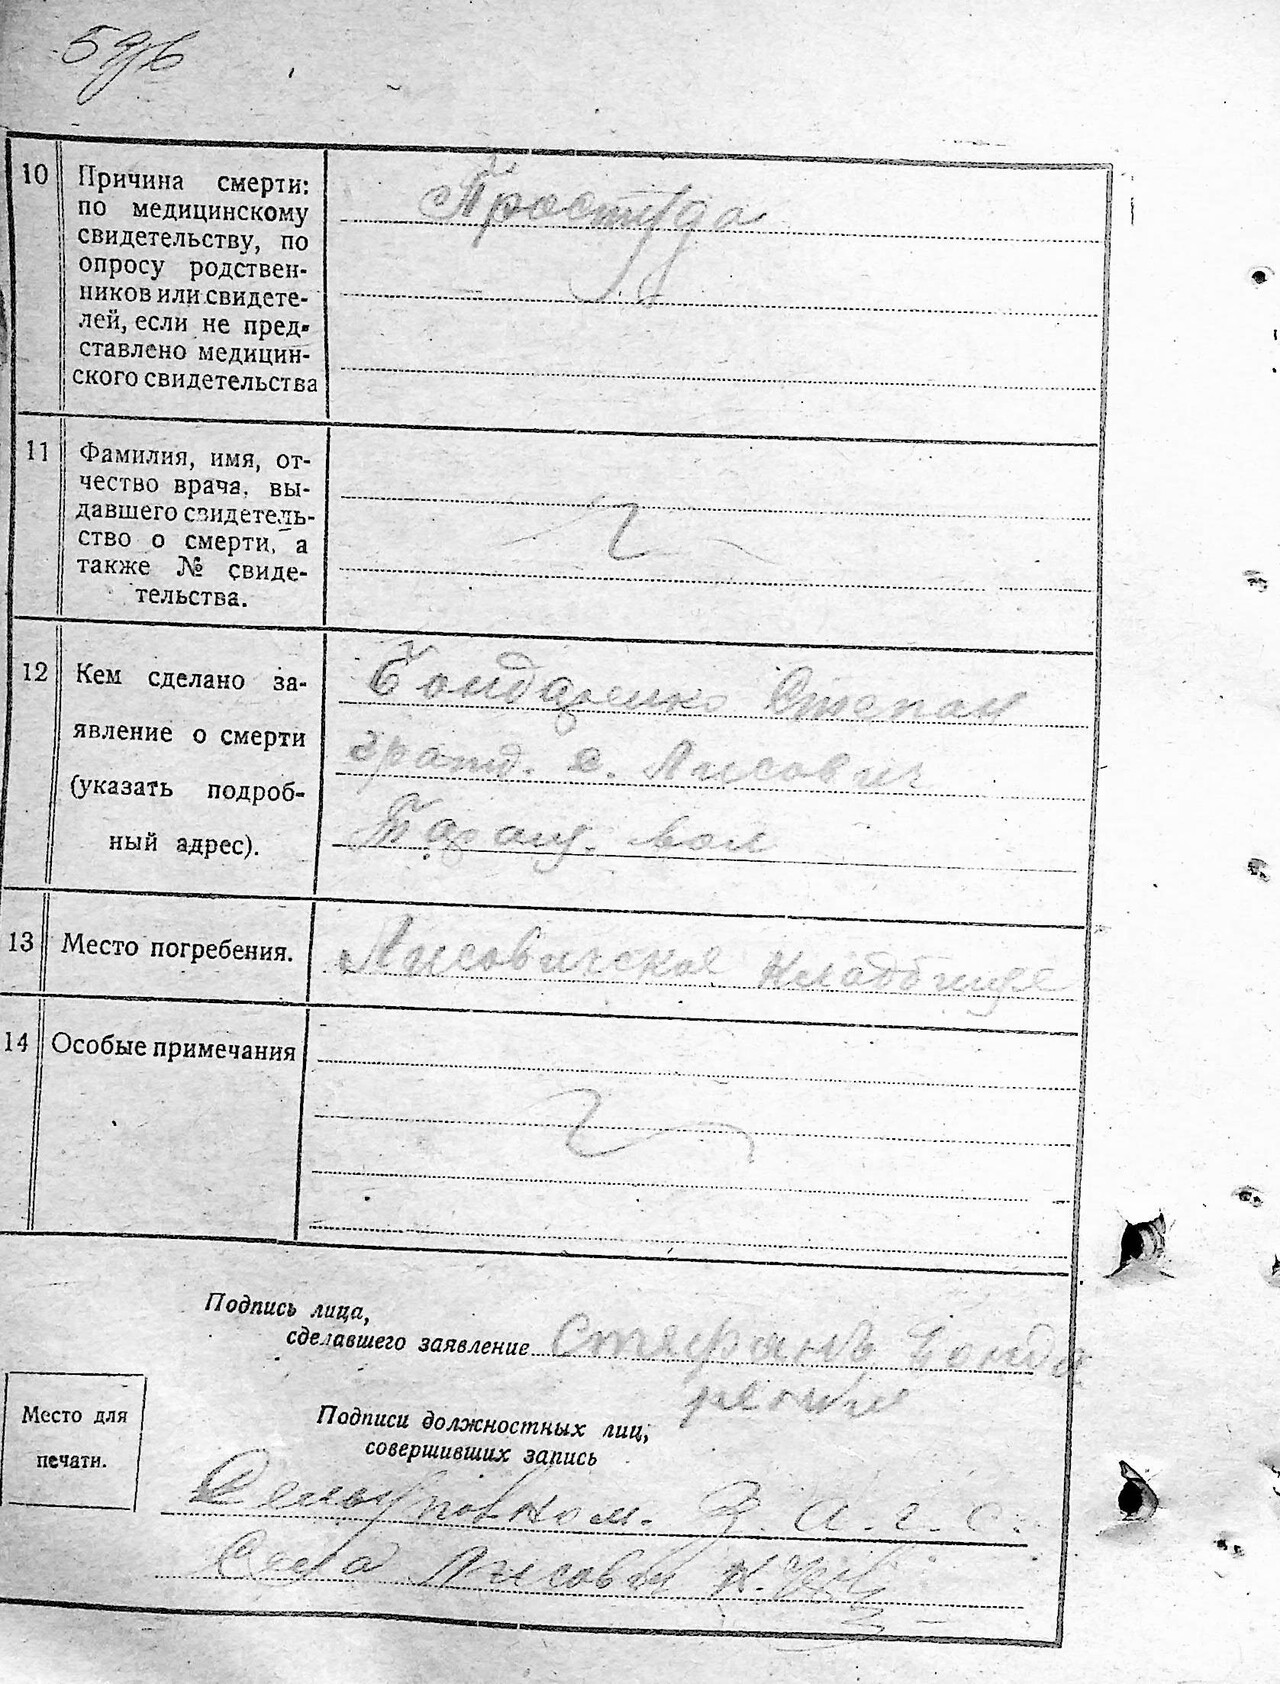 10 Причина смерти:
по медицинскому
свидетельству, по
опросу родствен-
ников или свидете-
лей, если не пред-
ставлено медицин-
ского свидетельства
Простуда
11 Фамилия, имя, от-
чество врача, вы-
давшего свидетель-
ство о смерти, а
также № свиде-
тельства.
12 Кем сделано за-
явление о смерти
(указать подроб-
ный адрес).
Бондаренко Степан
гражд. с. Лисович
Таращ. вол
13 Место погребения.
Лисовичское кладбище
14 Особые примечания
Подпись лица,
сделавшего заявление Стефанъ Бонда
ренко
Место для
печати.
Подписи должностных лиц,
совершивших запись
З. а. г. с.
Села Лисович